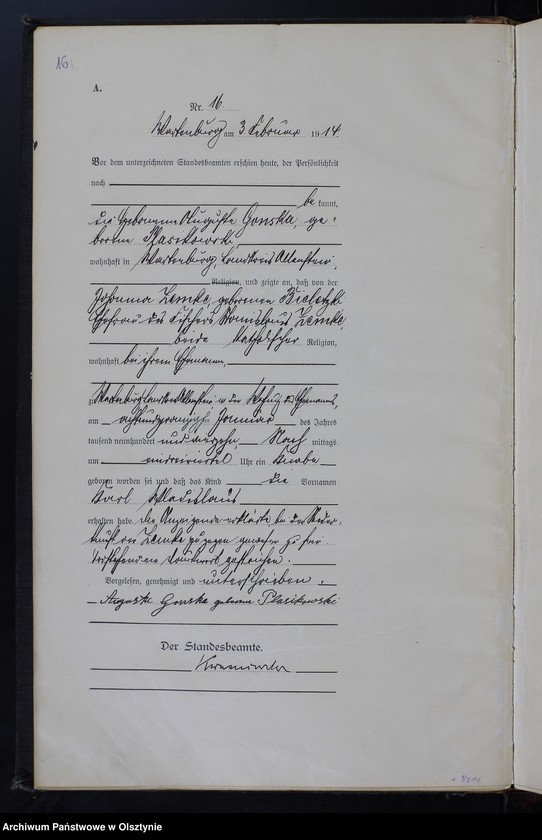 16
A.
Nr. 16.
Wartenburg am 3 Februar 1914.
Vor dem unterzeichneten Standesbeamten erschien heute, der Persönlichkeit
nach
be kannt,
die Hebamme Auguste Gonska, ge-
borene Plasikowski,
wohnhaft in Wartenburg, Landkreis Allenstein,
Religion, und zeigte an, daß von der
Johanna Lemke, geborenen Bieletzki
Ehefrau des Fischers Stanislaus Lemke,
beide katholischer Religion,
wohnhaft bei ihrem Ehemann,
zu Wartenburg Landkreis Allenstein in der Wohnung des Ehemannes,
am achtundzwanzigsten Januar des Jahres
tausend neunhundert und vierzehn, Nach mittags
um Uhr ein Knabe
geboren worden sei und daß das Kind die Vornamen
Karl Wladislaus
erhalten habe. Die Anzeigende erklärte, bei der Nieder-
kunft der Lemke zugegen gewesen zu sein.
Vorstehend ein Druckwort gestrichen.
Vorgelesen, genehmigt und unterschrieben.
Auguste Gonska geborene Plasikowski
Der Standesbeamte.
Archiwum Państwowe w Olsztynie